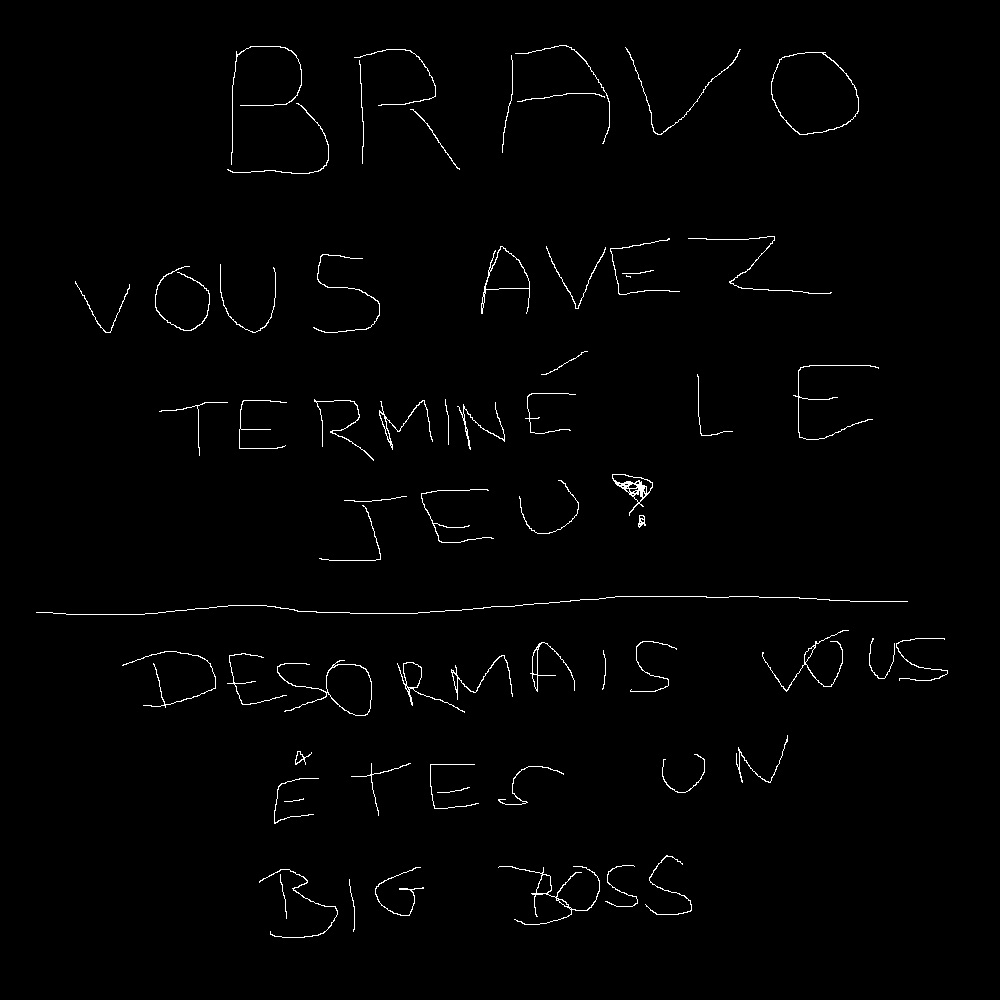 BRAVO
VOUS AVEZ
TERMINÉ LE
JEU!
DESORMAIS VOUS
ÊTES UN
BIG BOSS